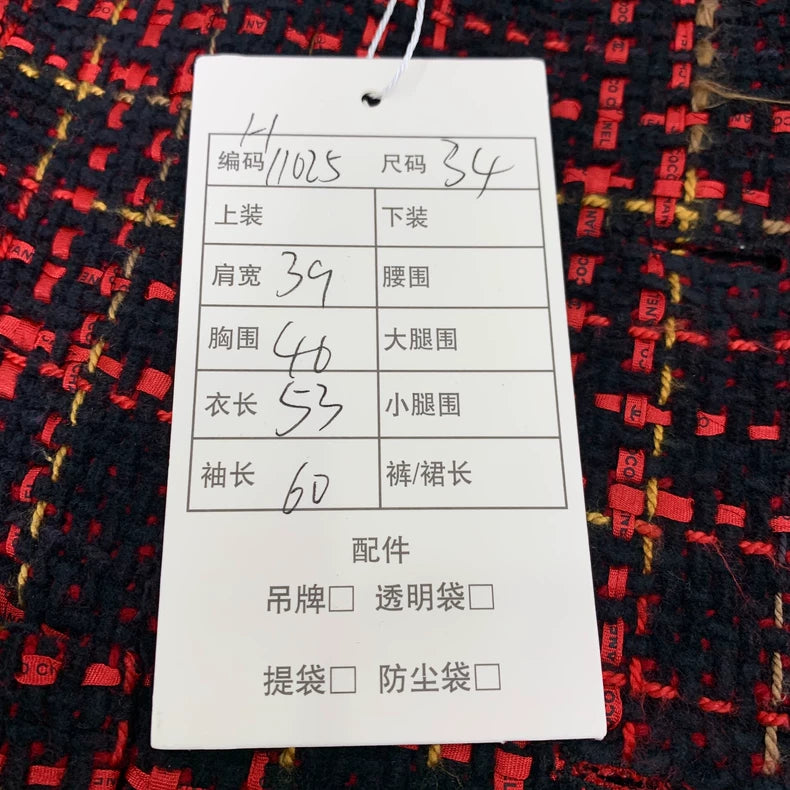 H
编码 11025 尺码 34
上装 下装
肩宽 39 腰围
胸围 46 大腿围
衣长 53 小腿围
袖长 60 裤/裙长
配件
吊牌□ 透明袋□
提袋□ 防尘袋□